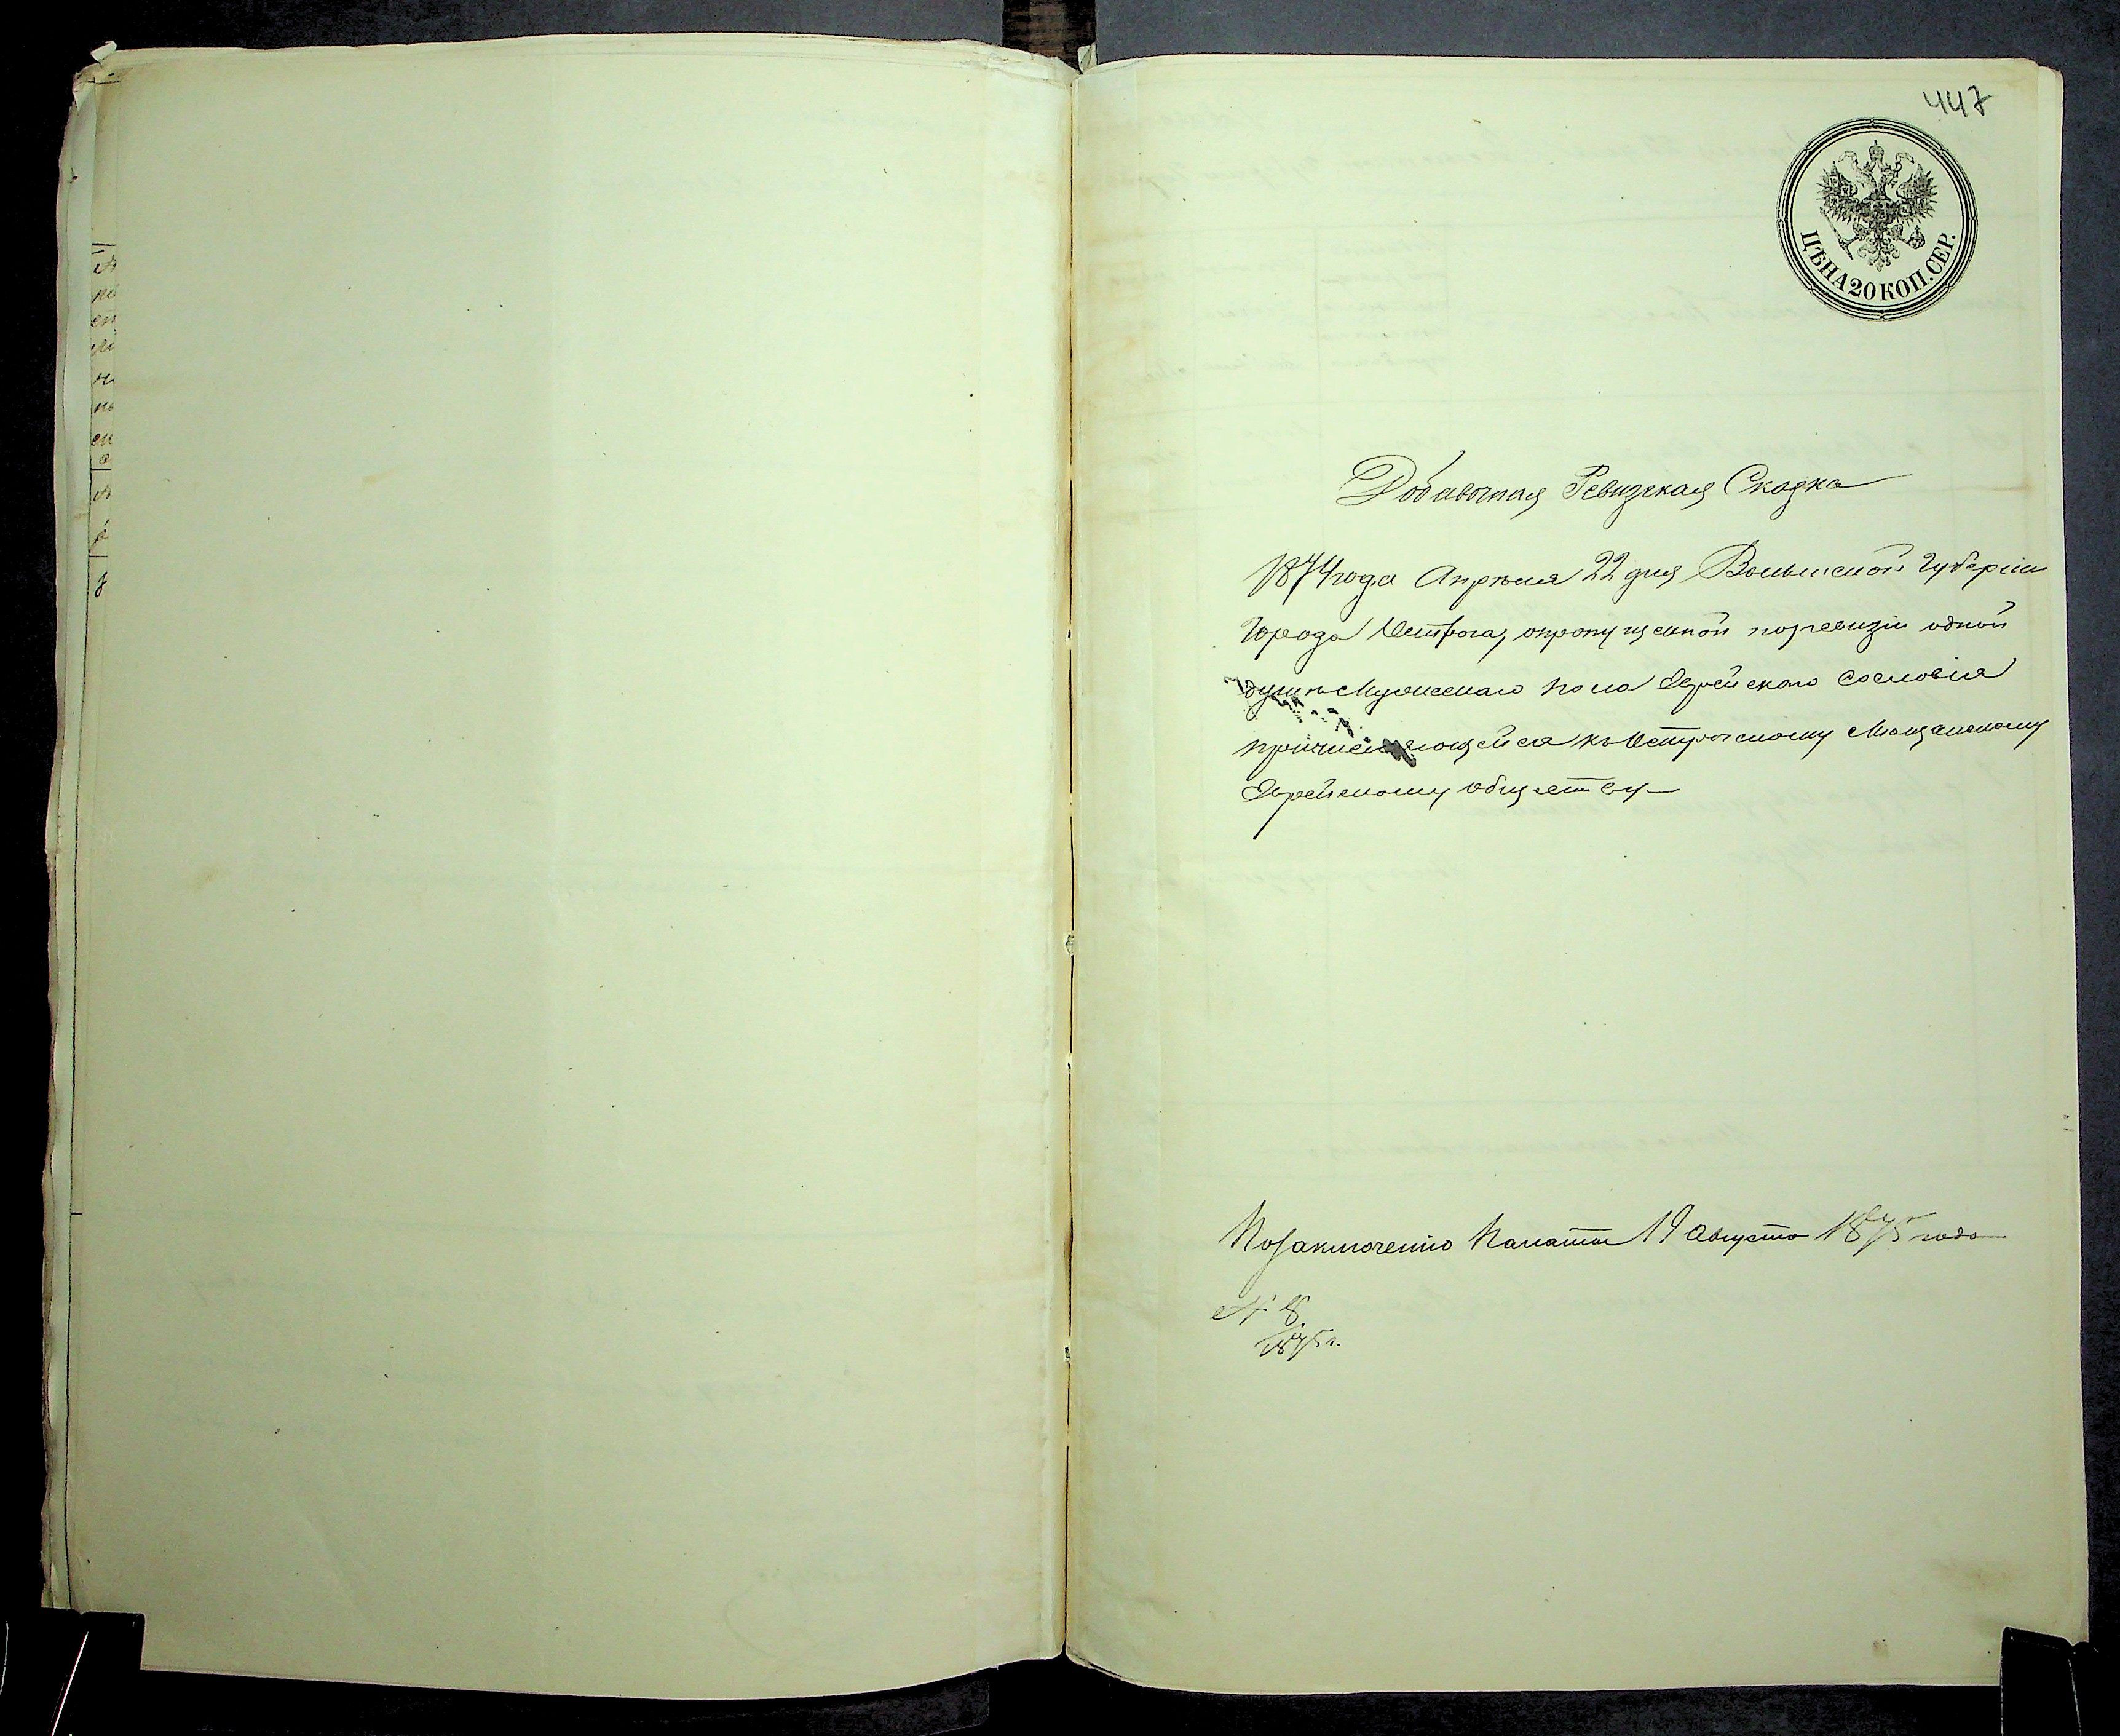 447
ЦѢНА 20 КОП. СЕР.
Добавочная Ревизская Сказка
1874 года Апрѣля 22 дня Волынской Губерніи
Города Острога, опропущенной поревизіи одной
души Мужескаго пола Еврейскаго сословія
причисляющейся къ Острожскому Мѣщанскому
Еврейскому обществу
Позаключенію Палаты 19 Августа 1875 года
№ 8
1875 г.